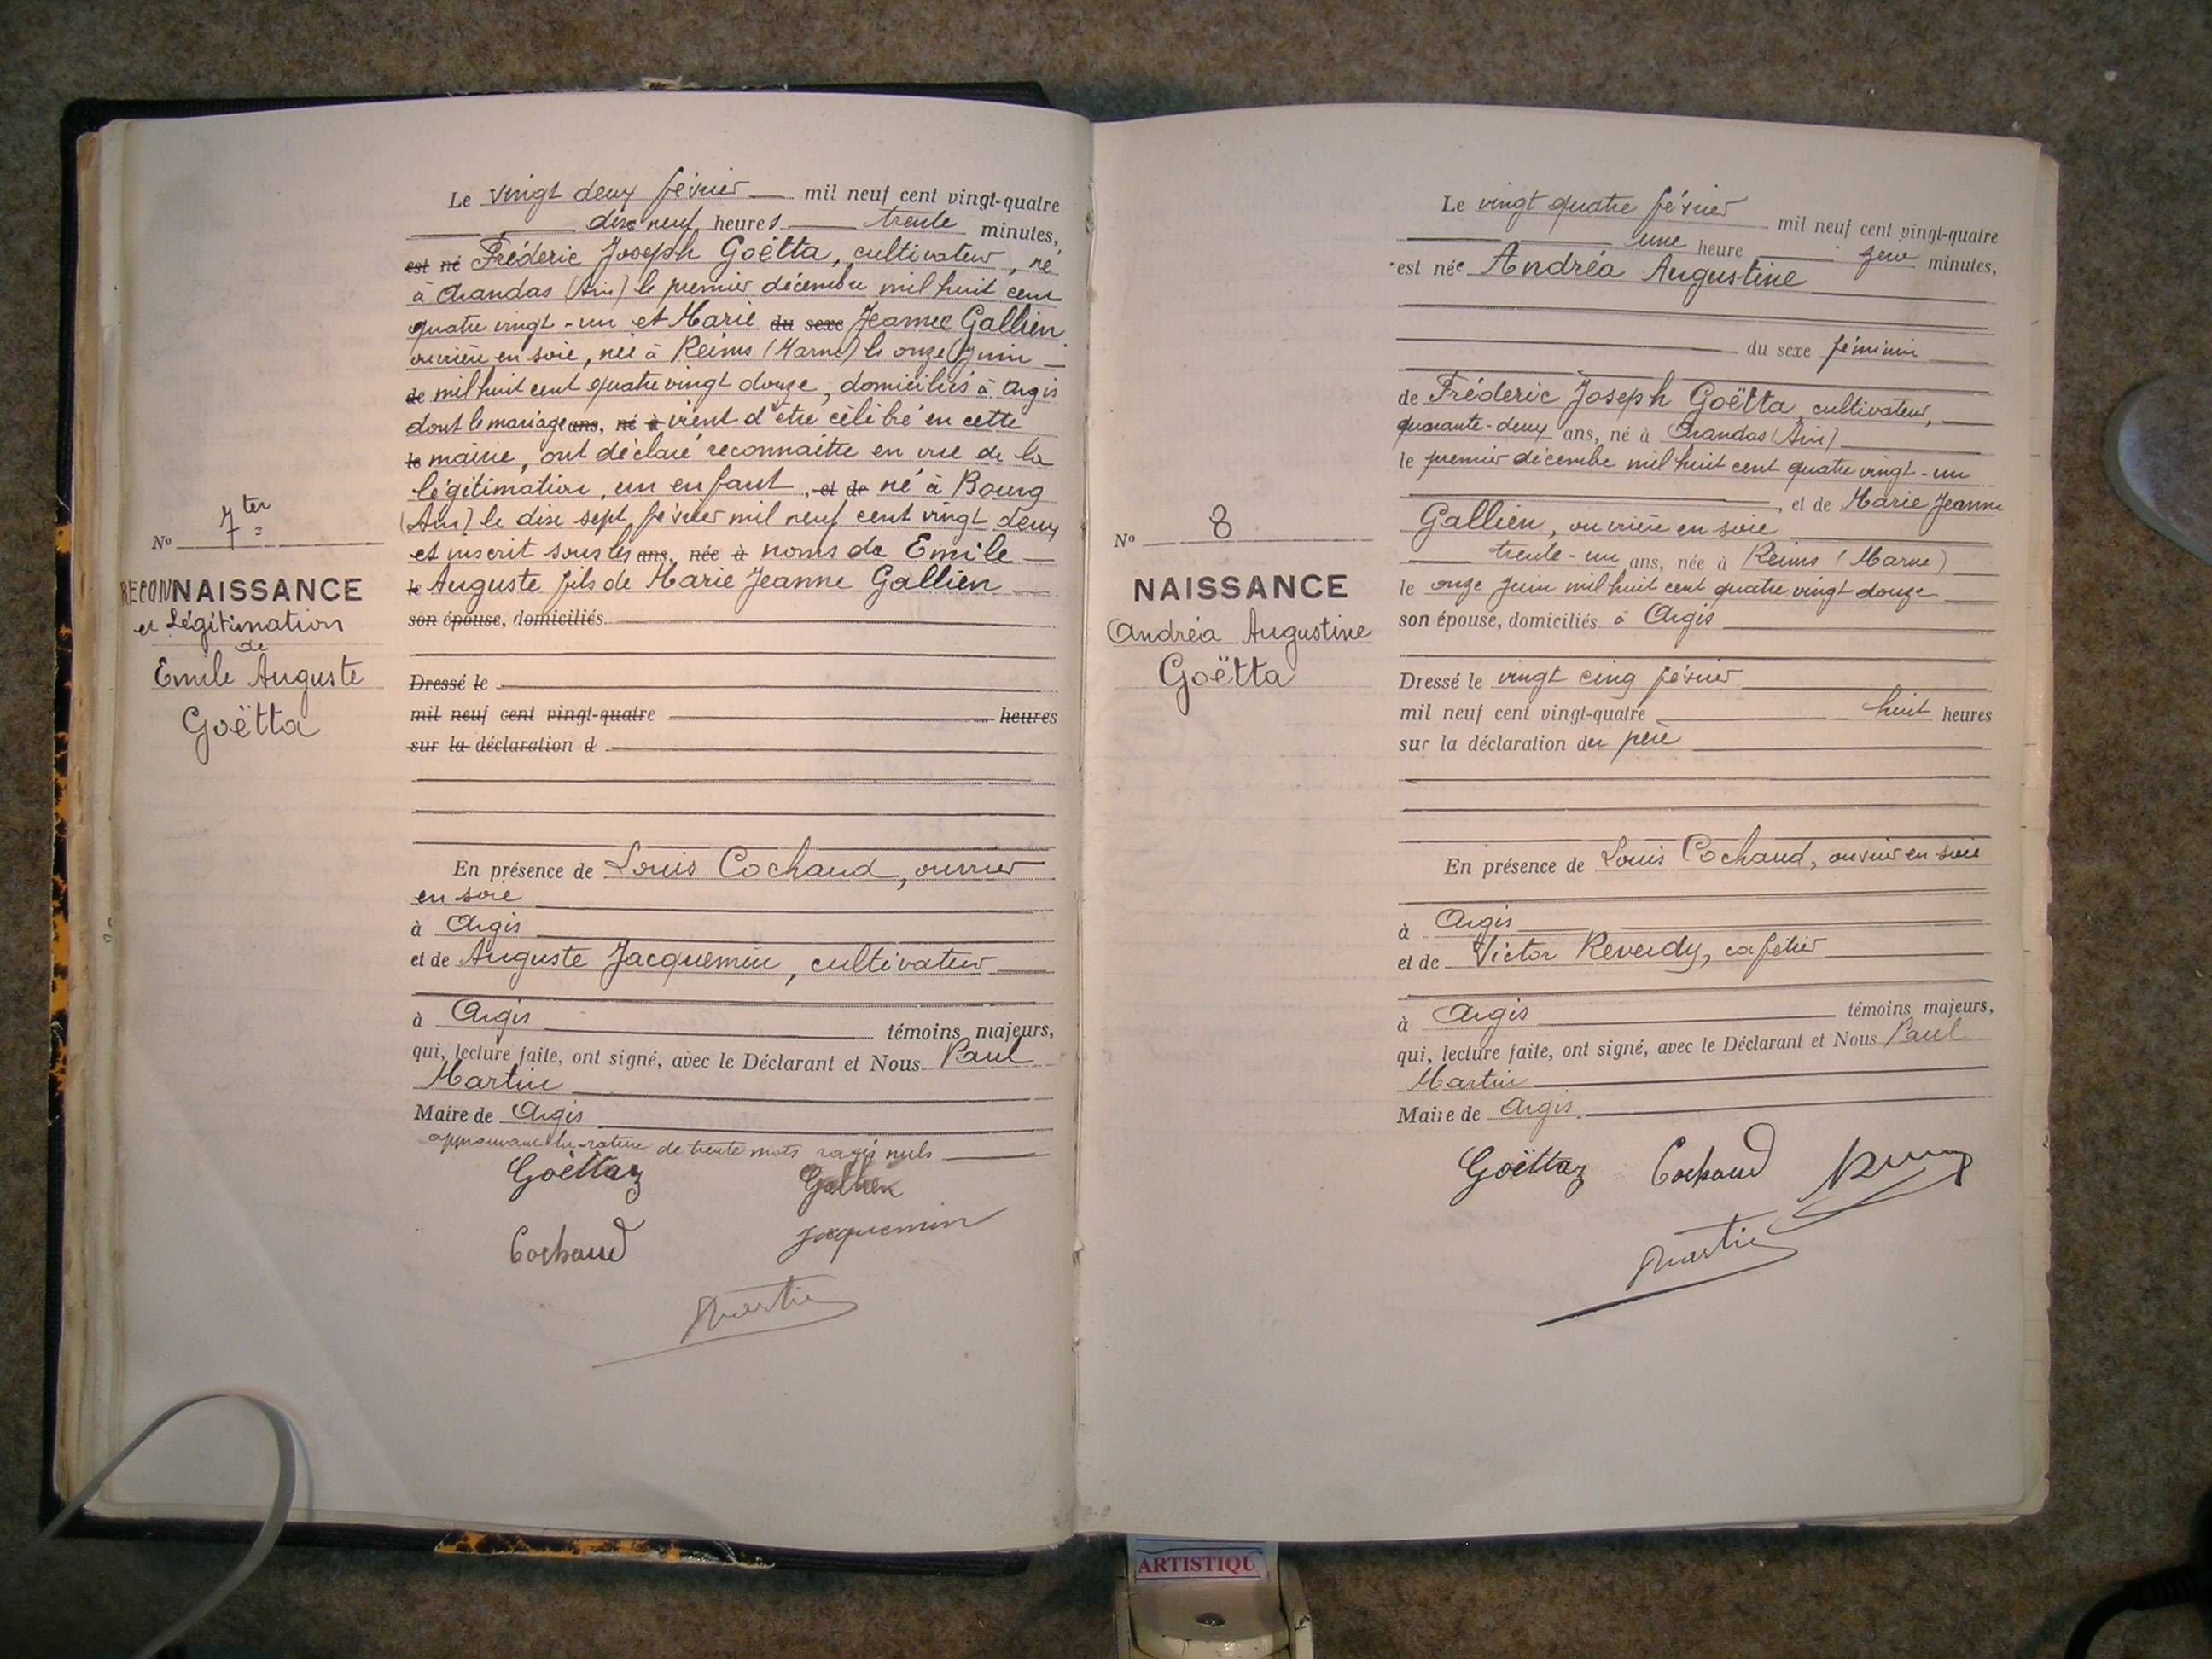 Le vingt deux février mil neuf cent vingt-quatre
dix neuf heures trente minutes,
est né Fréderic Joseph Goëtta, cultivateur, né
à Arandas (Ain) le premier décembre mil huit cent
quatre vingt-un et Marie du sexe Jeanne Gallien
ouvrière en soie, née à Reims (Marne) le onze Juin
de mil huit cent quatre vingt douze, domiciliés à Argis
dont le mariage ans, né à vient d'être célébré en cette
le mairie, ont déclaré reconnaitre en vue de la
légitimation, un enfant, et de né à Bourg
(Ain) le dix sept février mil neuf cent vingt deux
et inscrit sous les ans, née à noms de Emile
le Auguste fils de Marie Jeanne Gallien
son épouse, domiciliés
Dressé le
mil neuf cent vingt-quatre heures
sur la déclaration d
En présence de Louis Cochaud, ouvrier
en soie
à Argis
et de Auguste Jacquemin, cultivateur
à Argis témoins majeurs,
qui, lecture faite, ont signé, avec le Déclarant et Nous Paul
Martin
Maire de Argis
approuvant la rature de trente mots rayés nuls
Goëttaz Gallien
Cochaud Jacquemin
Martin
No 7ter
RECONNAISSANCE
et Légitimation
de
Emile Auguste
Goëtta
Le vingt quatre février mil neuf cent vingt-quatre
une heure zero minutes,
est née Andréa Augustine
du sexe féminin
de Fréderic Joseph Goëtta, cultivateur,
quarante-deux ans, né à Arandas (Ain)
le premier décembre mil huit cent quatre vingt-un
, et de Marie Jeanne
Gallien, ouvrière en soie
trente-un ans, née à Reims (Marne)
le onze Juin mil huit cent quatre vingt douze
son épouse, domiciliés à Argis
Dressé le vingt cinq février
mil neuf cent vingt-quatre huit heures
sur la déclaration du père
En présence de Louis Cochaud, ouvrier en soie
à Argis
et de Victor Reverdy, cafetier
à Argis témoins majeurs,
qui, lecture faite, ont signé, avec le Déclarant et Nous Paul
Martin
Maire de Argis
Goëttaz Cochaud
Martin
No 8
NAISSANCE
Andréa Augustine
Goëtta
ARTISTIQU